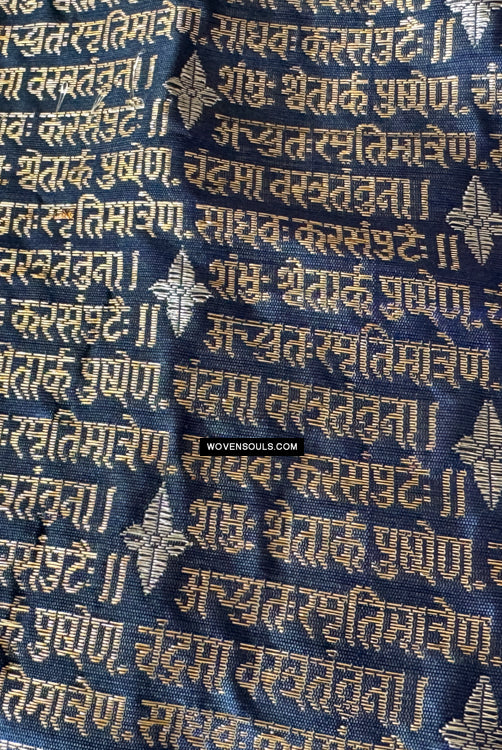 च्युतःस्मृतिमात्रेण साधवः करसंपुटैः ॥
मा वस्त्रतंतुना । शंभुः श्वेतार्क पुष्पेण
धवः करसंपुटैः ॥ अच्युतःस्मृतिमात्रेण
श्वेतार्क पुष्पेण चंद्रमा वस्त्रतंतुना ।
च्युतःस्मृतिमात्रेण साधवः करसंपुटैः ॥
वस्त्रतंतुना । शंभुः श्वेतार्क पुष्पेण
वः करसंपुटैः ॥ अच्युतःस्मृतिमात्रेण
श्वेतार्क पुष्पेण चंद्रमा वस्त्रतंतुना ।
तःस्मृतिमात्रेण साधवः करसंपुटैः ॥
WOVENSOULS.COM
तंतुना । शंभुः श्वेतार्क पुष्पेण
रसंपुटैः ॥ अच्युतःस्मृतिमात्रेण
र्क पुष्पेण चंद्रमा वस्त्रतंतुना ।
तिमात्रेण साधवः करसंपुटैः